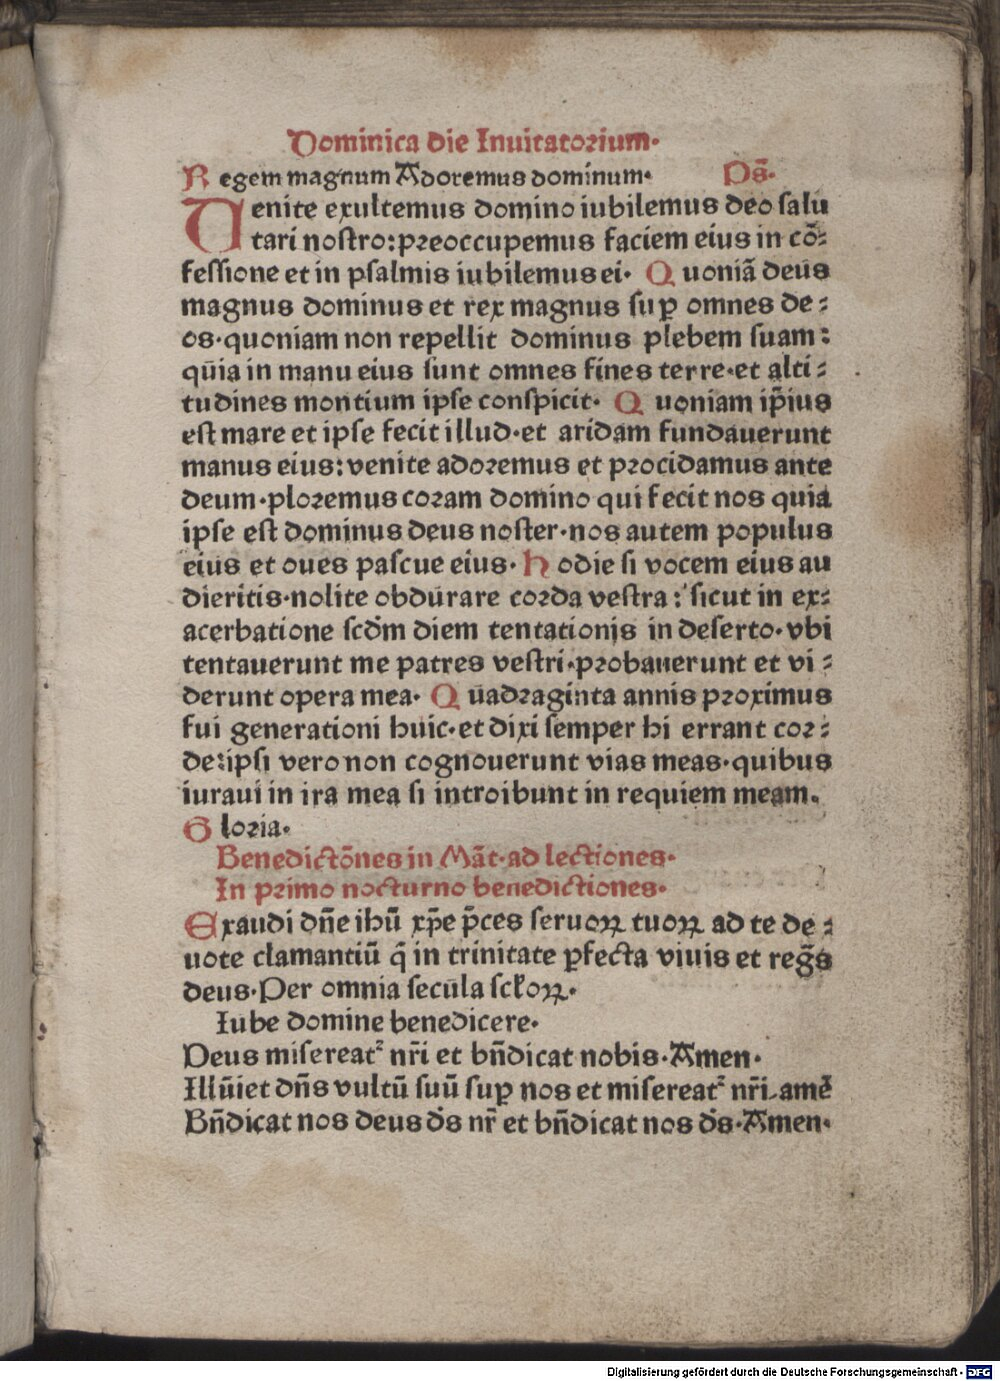 Dominica die Inuitatorium·
Regem magnum Adoremus dominum· Ps̄·
Uenite exultemus domino iubilemus deo salu
tari nostro: preoccupemus faciem eius in cō⸗
fessione et in psalmis iubilemus ei· Quoniā deus
magnus dominus et rex magnus suꝑ omnes de⸗
os·quoniam non repellit dominus plebem suam:
quia in manu eius sunt omnes fines terre·et alti⸗
tudines montium ipse conspicit· Quoniam ip̄ius
est mare et ipse fecit illud·et aridam fundauerunt
manus eius: venite adoremus et procidamus ante
deum·ploremus coram domino qui fecit nos quia
ipse est dominus deus noster·nos autem populus
eius et oues pascue eius· Hodie si vocem eius au
dieritis·nolite obdurare corda vestra: sicut in ex⸗
acerbatione scd̄m diem tentationis in deserto·vbi
tentauerunt me patres vestri·probauerunt et vi⸗
derunt opera mea· Quadraginta annis proximus
fui generationi huic·et dixi semper hi errant cor⸗
de:ipsi vero non cognouerunt vias meas·quibus
iuraui in ira mea si introibunt in requiem meam.
Gloria·
Benedictōnes in Māt·ad lectiones·
In primo nocturno benedictiones·
Exaudi dn̄e ihū xp̄e p̄ces seruoꝝ tuoꝝ ad te de⸗
uote clamantiū q̄ in trinitate ꝑfecta viuis et reḡs
deus·Per omnia secula scl̄oꝝ·
Iube domine benedicere·
Deus misereatᷣ nr̄i et bn̄dicat nobis·Amen·
Illūiet dn̄s vultū suū suꝑ nos et misereatᷣ nr̄i·amē
Bn̄dicat nos deus d̄s nr̄ et bn̄dicat nos d̄s·Amen·
Digitalisierung gefördert durch die Deutsche Forschungsgemeinschaft - DFG